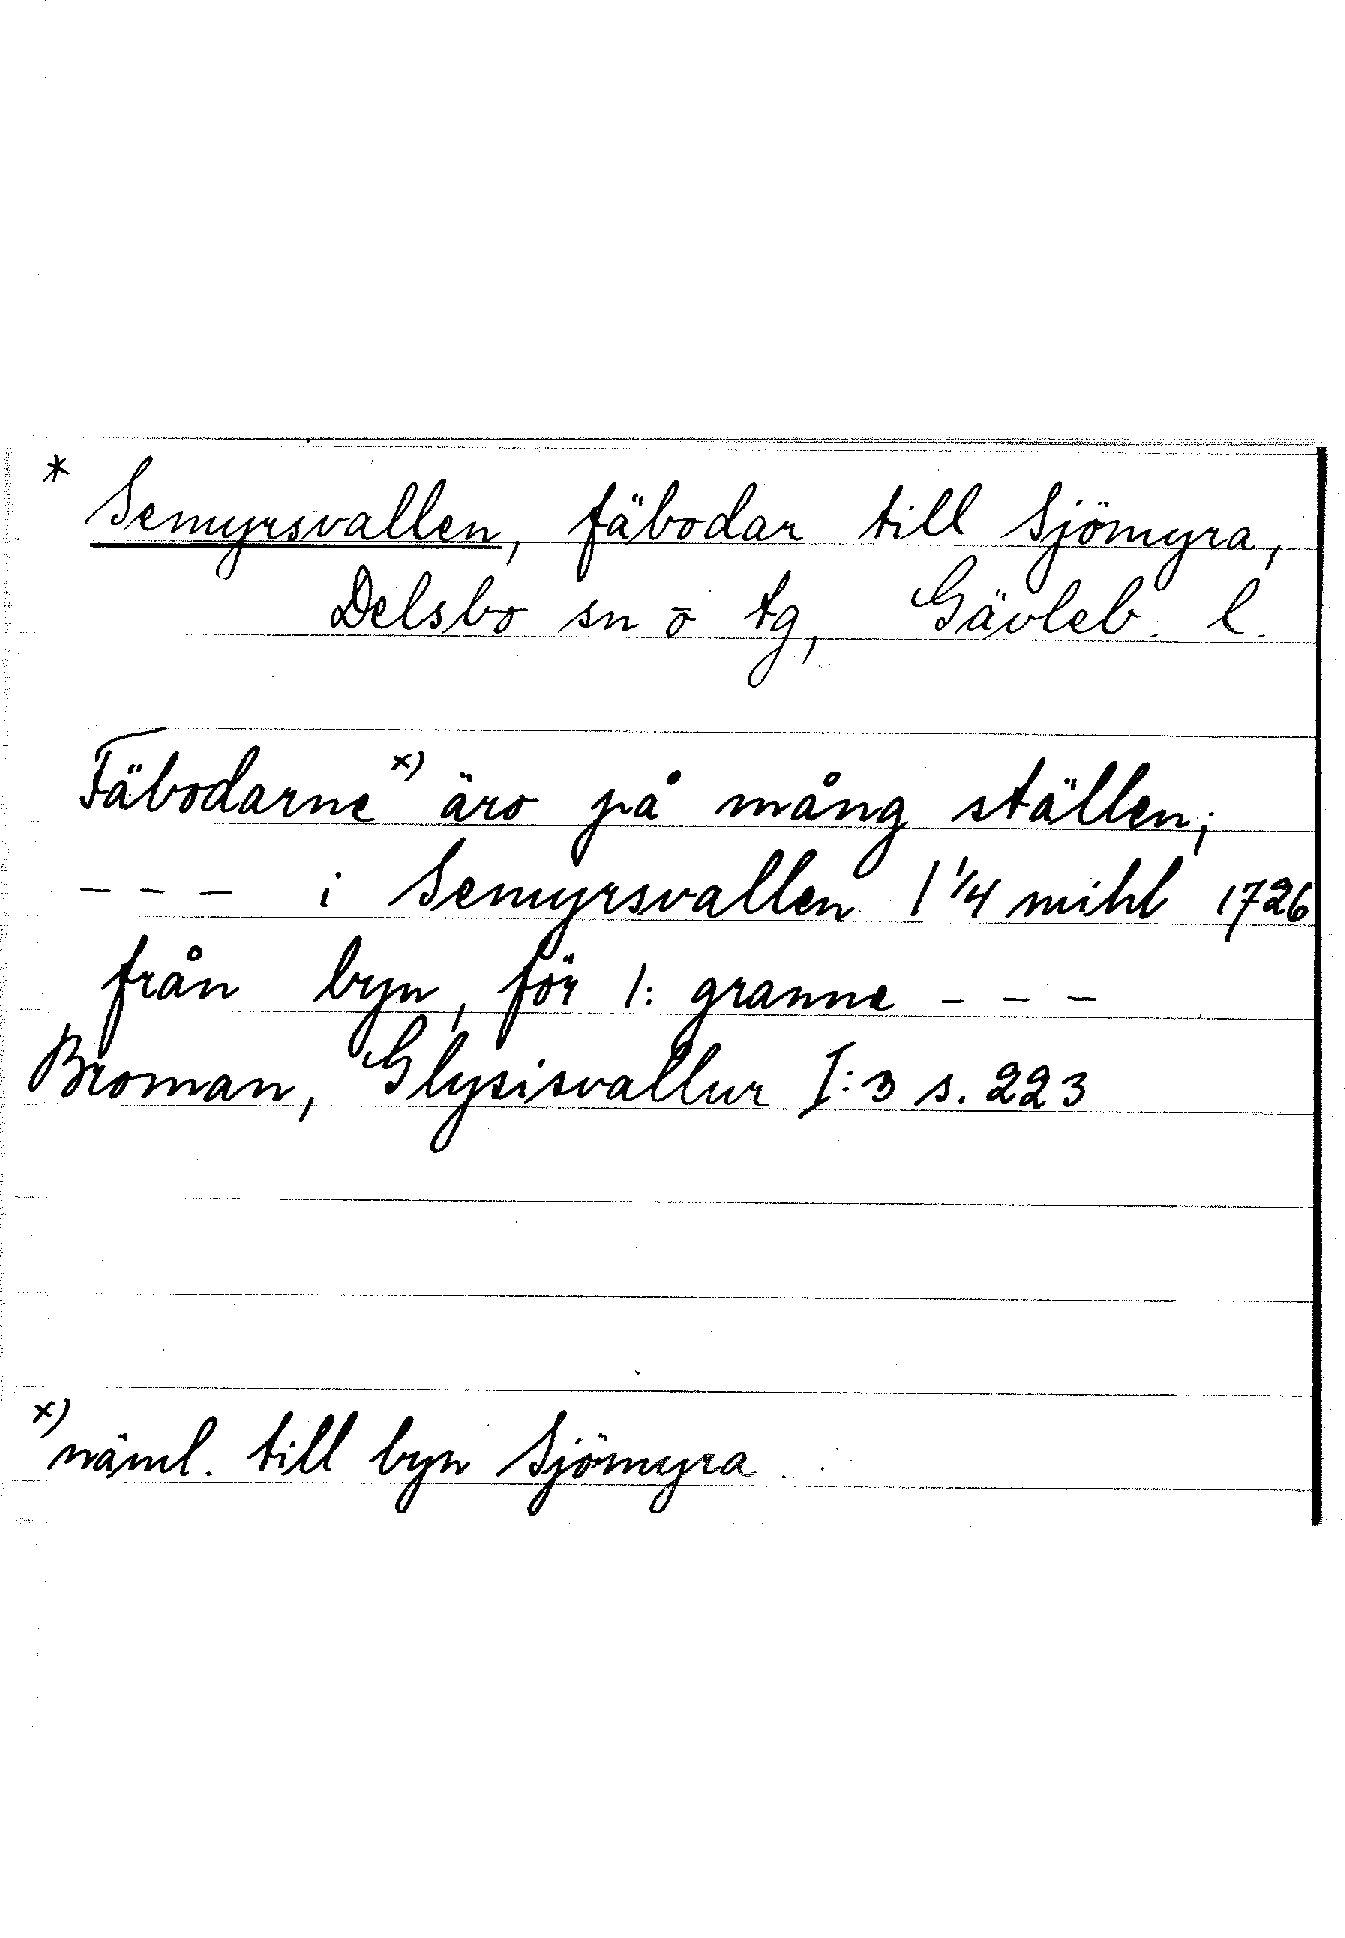 * Semyrsvallen, fäbodar till Sjömyra,
Delsbo sn o tg, Gävleb. l.
Fäbodarne x) äro på mång ställen;
--- i Semyrsvallen 1 1/4 mihl 1726
från byn, för 1: granne ---
Broman, Glysisvallur I:3 s. 223
x) näml. till byn Sjömyra